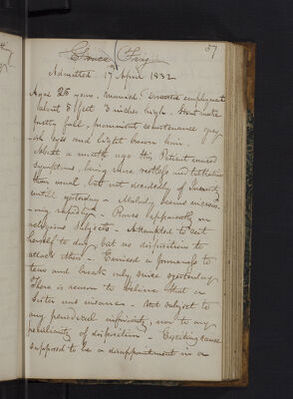 37
Grace Fry
Admitted 17 April 1832
Aged 25 years, married Domestic employment
about 5 feet 3 inches high - Stout make
full, prominent countenance grey
eyes and light brown hair.
About a month ago this Patient evinced
symptoms, being more restless and talkative
than usual, but not decidedly of Insanity
until yesterday - Malady seems increas-
-ing rapidly - Raves apparently on
religious subjects - Attempted to
herself to day but no disposition to
attack others - Evinced a propensity to
tear and break only since yesterday
There is reason to believe that a
Sister was insane - Not subject to
any periodical infirmity, nor to any
peculiarity of disposition - Exciting cause
supposed to be a disappointment in a